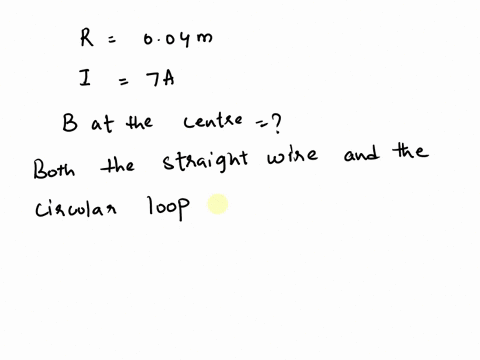 R = 0.04m
I = 7A
B at the centre = ?
Both the straight wire and the
circular loop